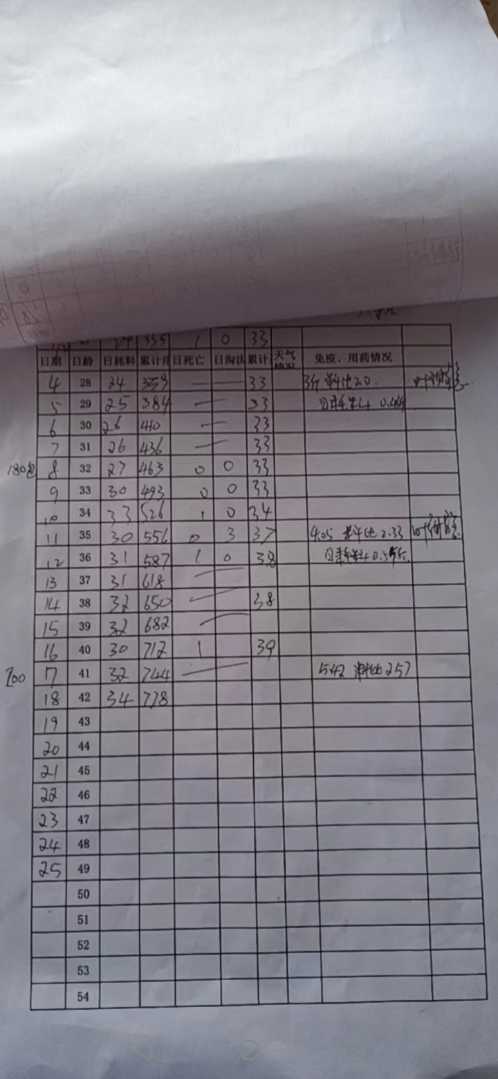 335 1 0 33
日期 日龄 日耗料 累计用 日死亡 日淘汰 累计 天气情况 免疫、用药情况
4 28 24 359 — — 33 3斤 料比20
5 29 25 384 — 33
6 30 26 410 — 33
7 31 26 436 — 33
180包 8 32 27 463 0 0 33
9 33 30 493 0 0 33
10 34 33 526 1 0 34
11 35 30 556 0 3 37 4.05 料比2.33
12 36 31 587 1 0 38
13 37 31 618 —
14 38 32 650 — 38
15 39 32 682 —
16 40 30 712 1 39
700 17 41 32 744 — 542 料比257
18 42 34 778
19 43
20 44
21 45
22 46
23 47
24 48
25 49
50
51
52
53
54